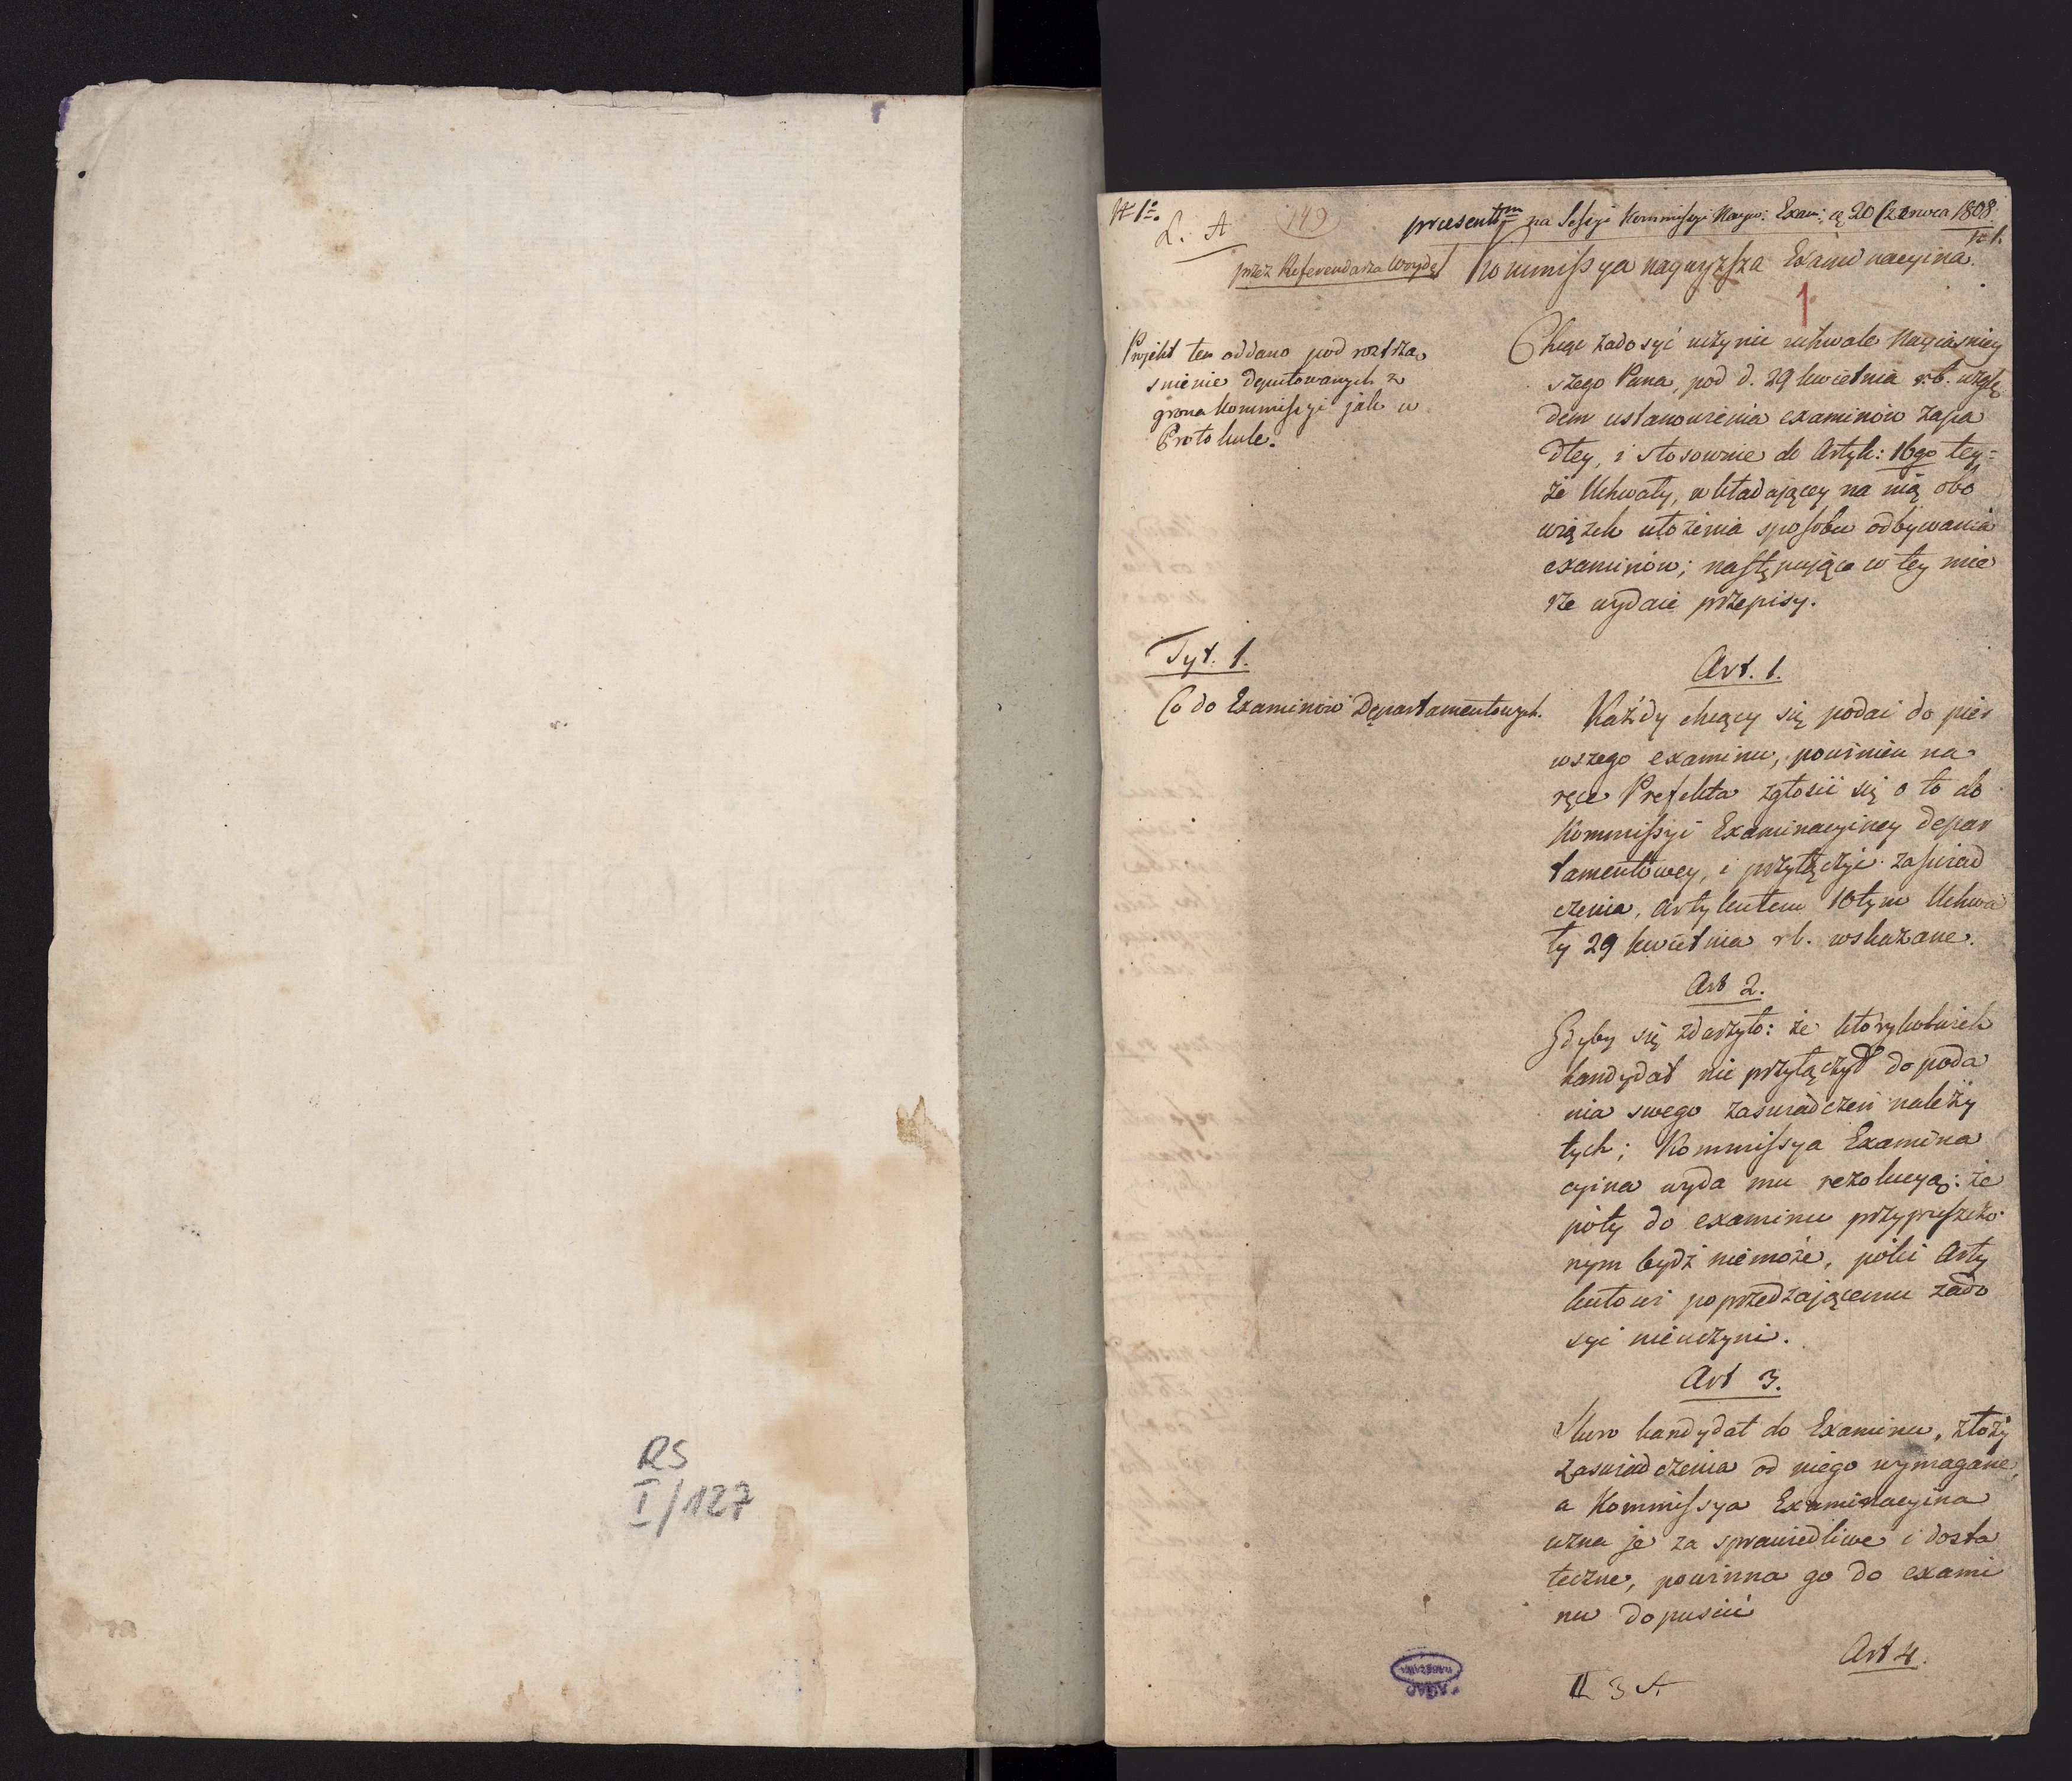 RS
I/127
N 1º.
L. A
149
praesentm na Sessyi Kommissyi Nayw: Exam: d. 20 Czerwca 1808.
N 1.
przez Referendarza Woydę
Kommissya naywyższa Examinacyina.
1
Projekt ten oddano pod roztrzą
śnienie deputowanych z
grona kommissyi jak w
Protokule.
Chcąc zadosyć uczynić uchwale Nayiaśniey
szego Pana, pod d. 29 kwietnia r.b. wzglę
dem ustanowienia examinów zapa
dłey, i stosownie do Artyk: 16go tey=
że Uchwały, wkładaiącey na nią obo
wiązek ułożenia sposobu odbywania
examinów; następuiące w tey mie
rze wydaie przepisy.
Tyt. 1.
Co do Examinów Departamentowych.
Art. 1.
Każdy chcący się podać do pier
wszego examinu, powinien na
ręce Prefekta zgłosić się o to do
Kommissyi Examinacyiney depar
tamentowey, i przyłączyć zaświad
czenia, artykułem 10tym Uchwa
ły 29 kwietnia r.b. wskazane.
Art 2.
Gdyby się zdarzyło: że którykolwiek
kandydat nie przyłączył do poda
nia swego zaświadczeń należy
tych; Kommissya Examina
cyina wyda mu rezolucyą: że
póty do examinu przypuszczo
nym bydź niemoże, póki Arty
kułowi poprzedzaiącemu zado
syć nieuczyni.
Art 3.
Skoro kandydat do Examinu, złoży
zaświadczenia od niego wymagane,
a Kommissya Examinacyina
uzna je za sprawiedliwe i dosta
teczne, powinna go do exami
nu dopuścić
Art 4.
II 3 A
AGAD